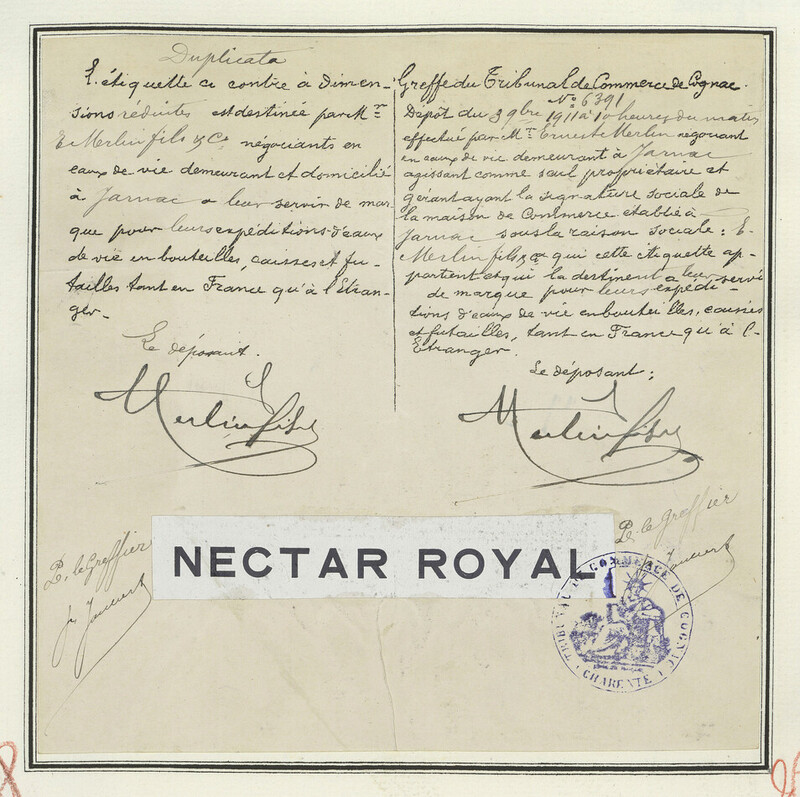 Duplicata
L'étiquette ci contre à dimen-
sions réduites est destinée par Mr
E. Merlin fils & Co négociants en
eaux de vie demeurant et domicilié
à Jarnac a leur servir de mar
que pour leurs expéditions d'eaux
de vie en bouteilles, caisses et fu-
tailles tant en France qu'à l'Etran-
ger.
Le déposant.
Merlin fils
P. le Greffier
Greffe du Tribunal de Commerce de Cognac.
No 6391
Dépôt du 3 9bre 1911 à 10 heures du matin
effectué par Mr Ernest Merlin négociant
en eaux de vie demeurant à Jarnac
agissant comme seul propriétaire et
gérant ayant la signature sociale de
la maison de Commerce établie à
Jarnac sous la raison sociale: E.
Merlin fils & Co qui cette étiquette ap-
partient et qui la destinent a leur servi
de marque pour leurs expédi-
tions d'eaux de vie en bouteilles, caisses
et futailles, tant en France qu'à l'-
Etranger.
Le déposant;
Merlin fils
P. le Greffier
NECTAR ROYAL
TRIBUNAL DE COMMERCE DE COGNAC
CHARENTE